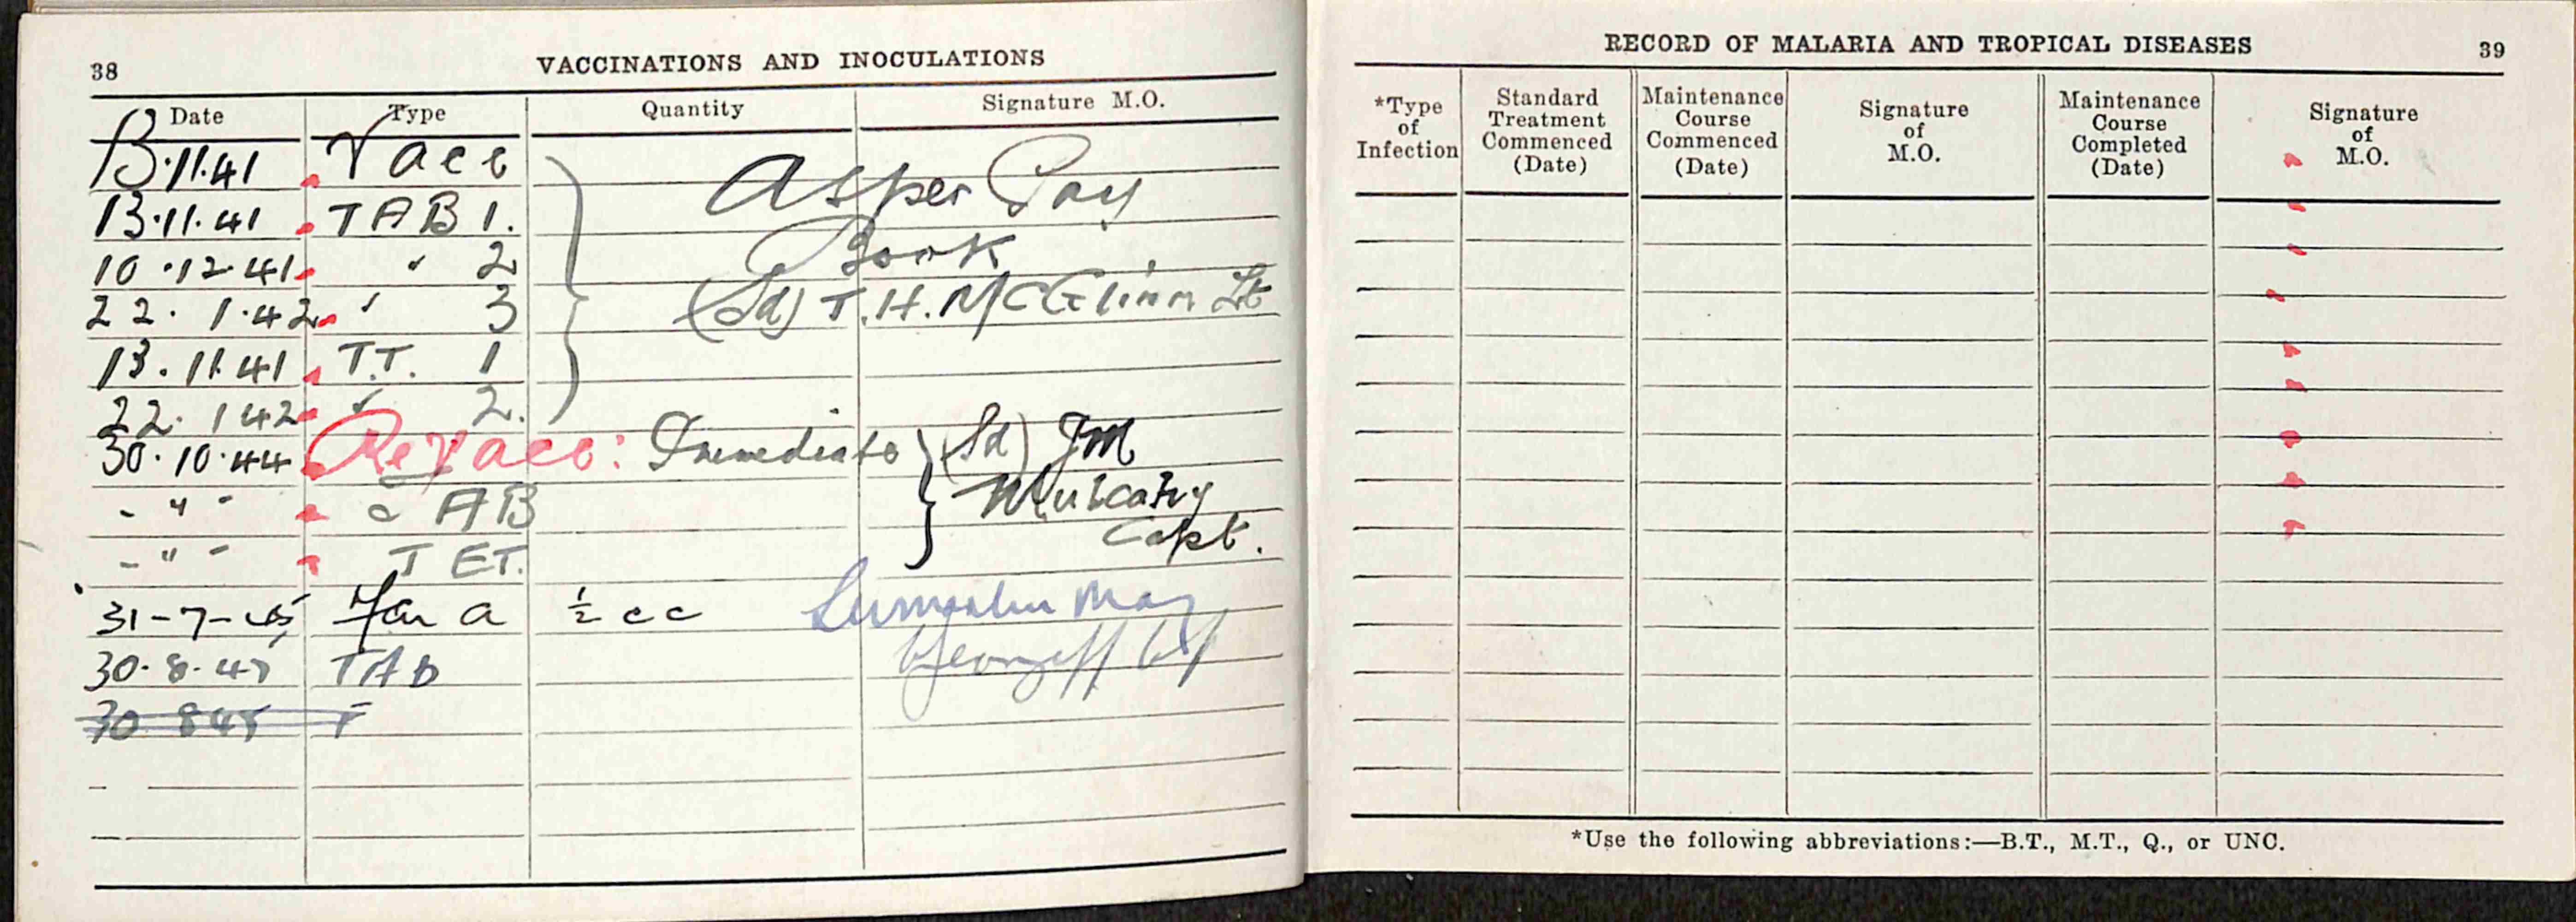 38
VACCINATIONS AND INOCULATIONS
Date Type Quantity Signature M.O.
13.11.41 Vacc As per Pay
13.11.41 TAB 1. Book
10.12.41 " 2
22. 1.42 " 3 (Sd) T.H. McGlinn Lt
13.11.41 T.T. 1
22. 1 42 " 2.
30.10.44 Re Vacc: Immediate (Sd) JM
- " - AB Mulcahy
- " - TET. Capt.
31-7-45 a ½ cc
30.8.45 TAB
30 8 45 T
RECORD OF MALARIA AND TROPICAL DISEASES
39
*Type of Infection
Standard Treatment Commenced (Date)
Maintenance Course Commenced (Date)
Signature of M.O.
Maintenance Course Completed (Date)
Signature of M.O.
*Use the following abbreviations:—B.T., M.T., Q., or UNC.